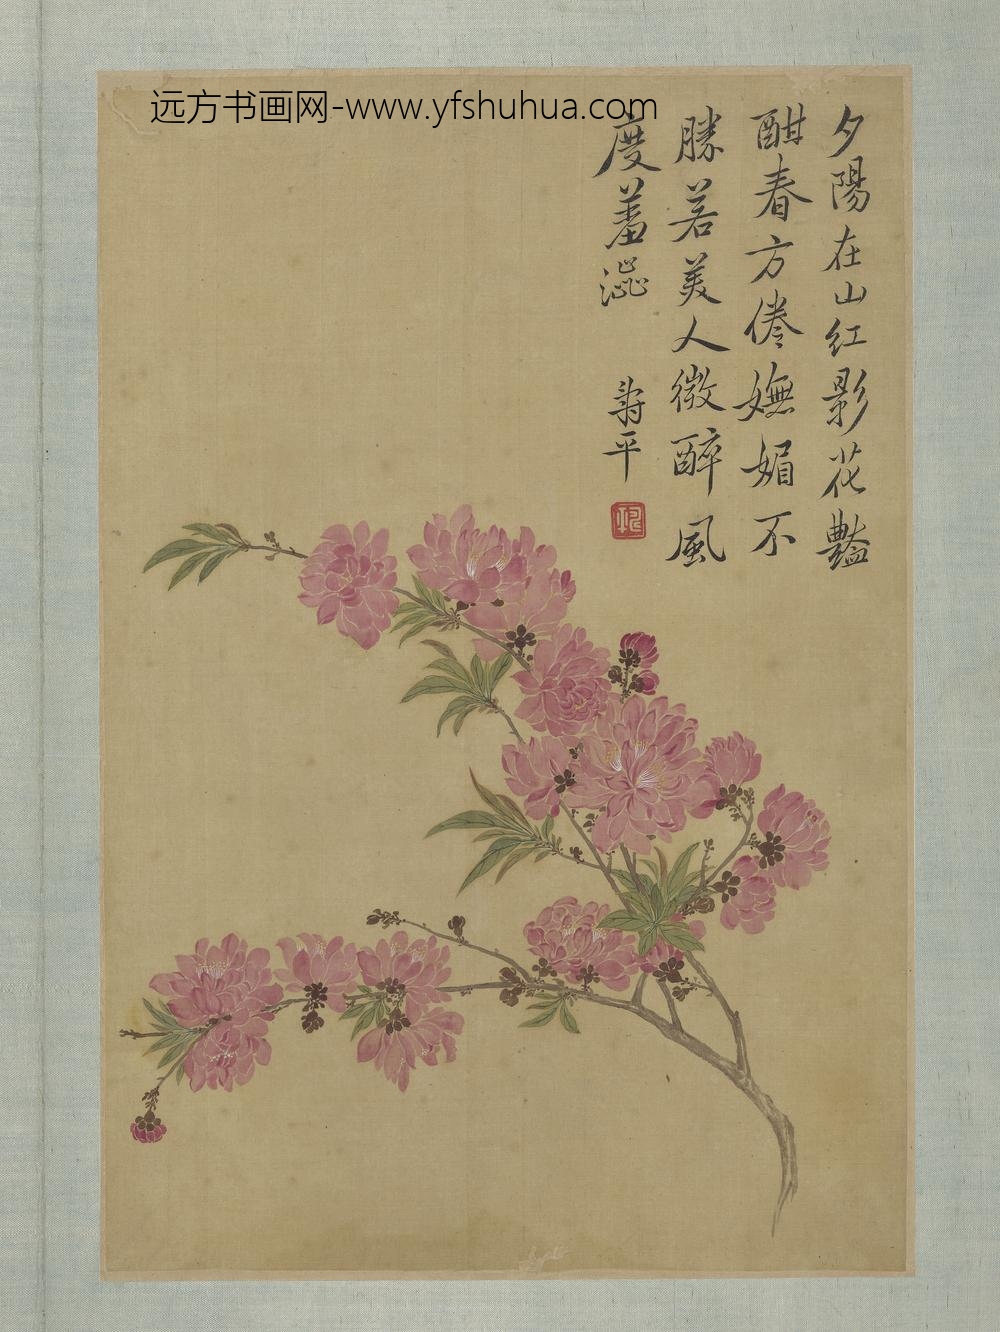 远方书画网-www.yfshuhua.com
夕陽在山紅影花豔
酣春方倦嫵媚不
勝若美人微醉風
度羞澁
壽平